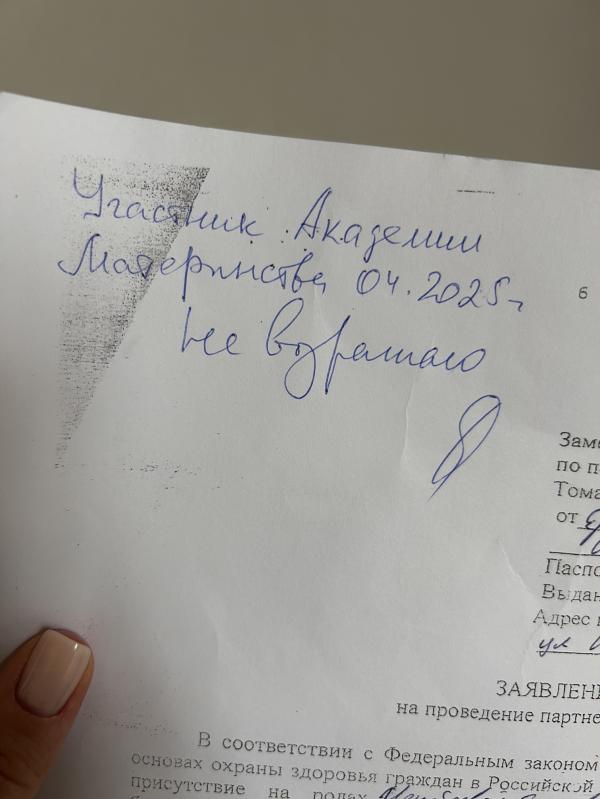 Участник Академии
Материнства 04.2025г
не возражаю
6
Заме
по п
Тома
от
Паспо
Выдан
Адрес
ул
ЗАЯВЛЕНИ
на проведение партне
В соответствии с Федеральным законом
основах охраны здоровья граждан в Российской
присутствие на родах